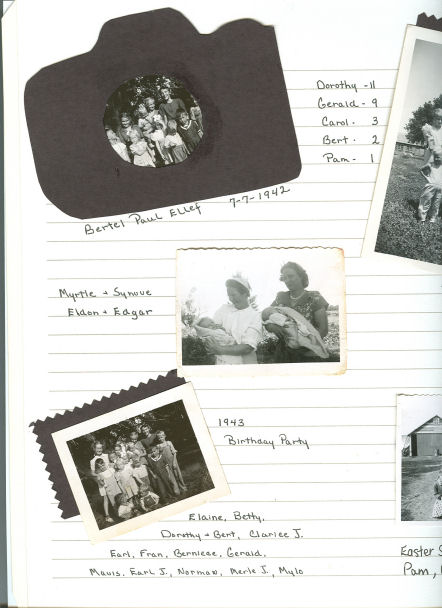 Dorothy - 11
Gerald - 9
Carol - 3
Bert - 2
Pam - 1
Bertel Paul Ellef 7-7-1942
Myrtle + Synove
Eldon + Edgar
1943
Birthday Party
Elaine, Betty,
Dorothy + Bert, Clarice J.
Earl, Fran, Berniece, Gerald,
Mavis, Earl J., Norman, Merle J., Mylo
Easter S
Pam,